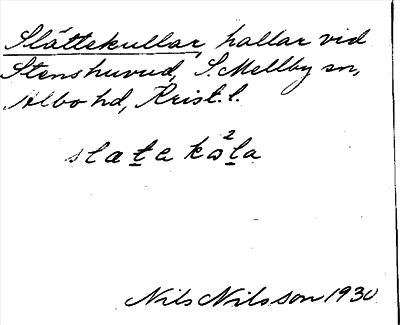 Slättekullar, hallar vid
Stenshuvud, S. Mellby sn,
Albo hd, Krist. l.
slætakɷ²la
Nils Nilsson 1930